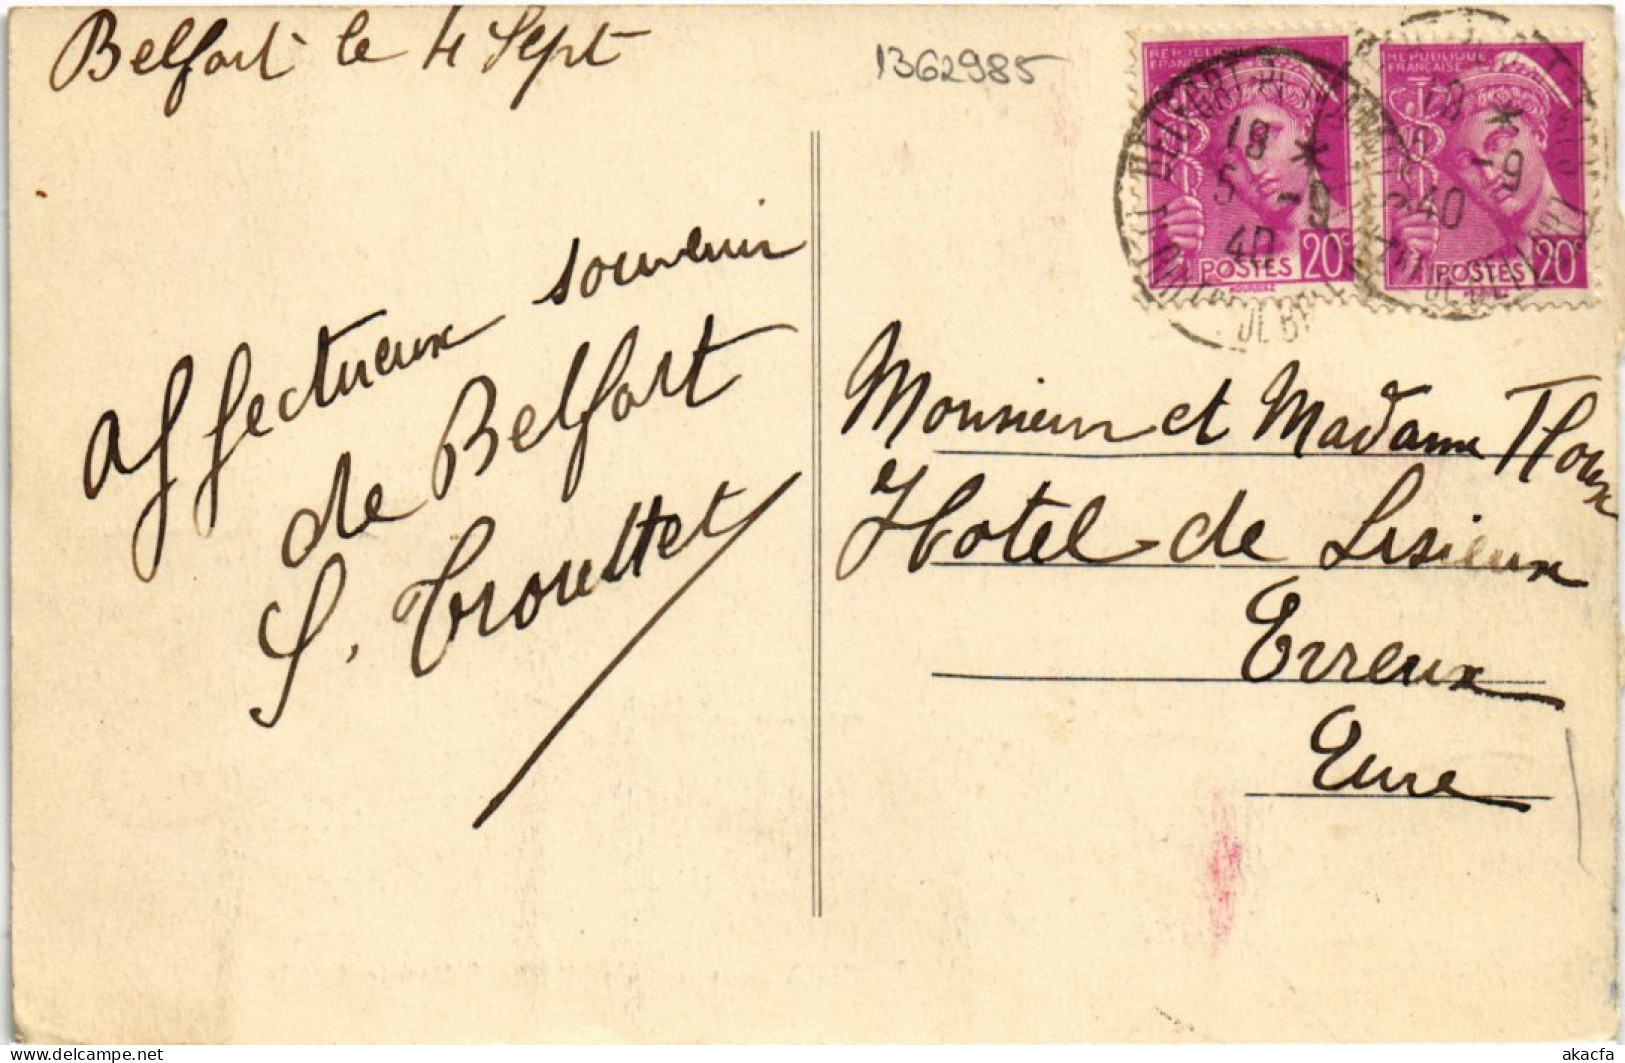 Belfort le 4 Sept
1362985
affectueux souvenir
de Belfort
S. Trouttet
REPUBLIQUE
FRANÇAISE
POSTES 20c
REPUBLIQUE
FRANÇAISE
POSTES 20c
BELFORT
18 *
5 -9
40
18 *
5 -9
40
Monsieur et Madame
Hotel de Lisieux
Evreux
Eure
delcampe.net
akacfa